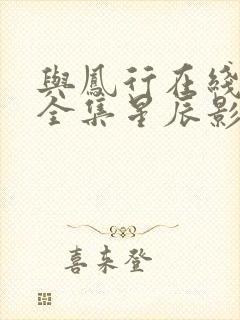 與鳳行在綫
全集星辰影
喜来登